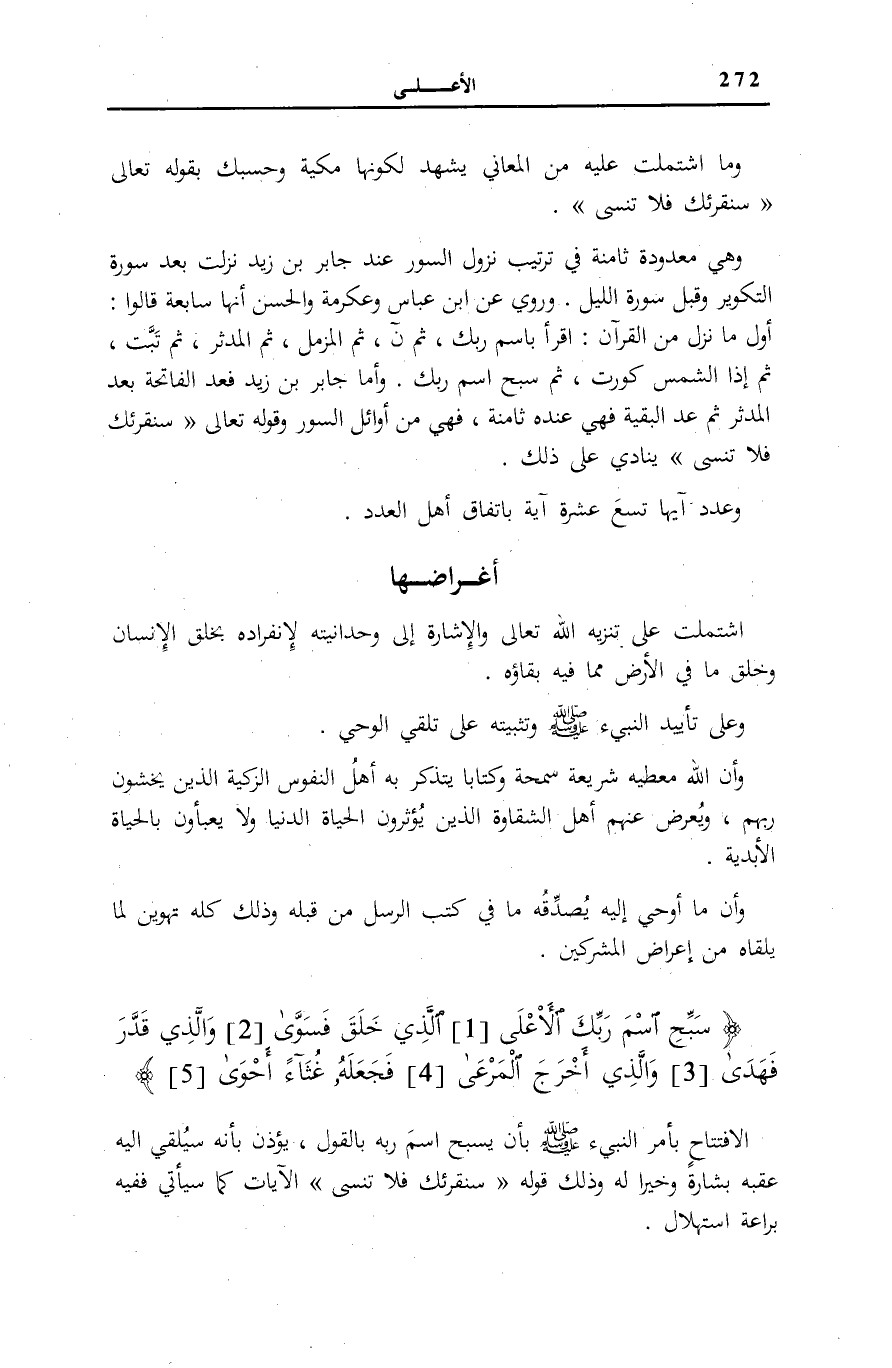 272
الأعـــلـــى
وما اشتملت عليه من المعاني يشهد لكونها مكية وحسبك بقوله تعالى
« سنقرئك فلا تنسى » .
وهي معدودة ثامنة في ترتيب نزول السور عند جابر بن زيد نزلت بعد سورة
التكوير وقبل سورة الليل . وروي عن ابن عباس وعكرمة والحسن أنها سابعة قالوا :
أول ما نزل من القرآن : اقرأ باسم ربك ، ثم نٓ ، ثم المزمل ، ثم المدثر ، ثم تَبَّت ،
ثم إذا الشمس كورت ، ثم سبح اسم ربك . وأما جابر بن زيد فعد الفاتحة بعد
المدثر ثم عد البقية فهي عنده ثامنة ، فهي من أوائل السور وقوله تعالى « سنقرئك
فلا تنسى » ينادي على ذلك .
وعدد آيها تسعَ عشرة آية باتفاق أهل العدد .
أغـراضـهـا
اشتملت على تنزيه الله تعالى والإِشارة إلى وحدانيته لإِنفراده بخلق الإِنسان
وخلق ما في الأرض مما فيه بقاؤه .
وعلى تأييد النبيء ﷺ وتثبيته على تلقي الوحي .
وأن الله معطيه شريعة سمحة وكتابا يتذكر به أهلُ النفوس الزكية الذين يخشون
ربهم ، ويُعرض عنهم أهل الشقاوة الذين يُؤثرون الحياة الدنيا ولا يعبأون بالحياة
الأبدية .
وأن ما أوحي إليه يُصدِّقُه ما في كتب الرسل من قبله وذلك كله تهوين لما
يلقاه من إعراض المشركين .
﴿ سَبِّحِ ٱسْمَ رَبِّكَ ٱلْأَعْلَى [1] ٱلَّذِي خَلَقَ فَسَوَّىٰ [2] وَالَّذِي قَدَّرَ
فَهَدَىٰ [3] وَالَّذِي أَخْرَجَ ٱلْمَرْعَىٰ [4] فَجَعَلَهُۥ غُثَآءً أَحْوَىٰ [5] ﴾
الافتتاح بأمر النبيء ﷺ بأن يسبح اسمَ ربه بالقول ، يؤذن بأنه سيُلقي اليه
عقبه بشارةً وخيرا له وذلك قوله « سنقرئك فلا تنسى » الآيات كما سيأتي ففيه
براعة استهلال .